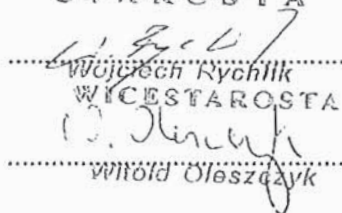 STAROSTA
Wojciech Rychlik
WICESTAROSTA
Witold Oleszczyk